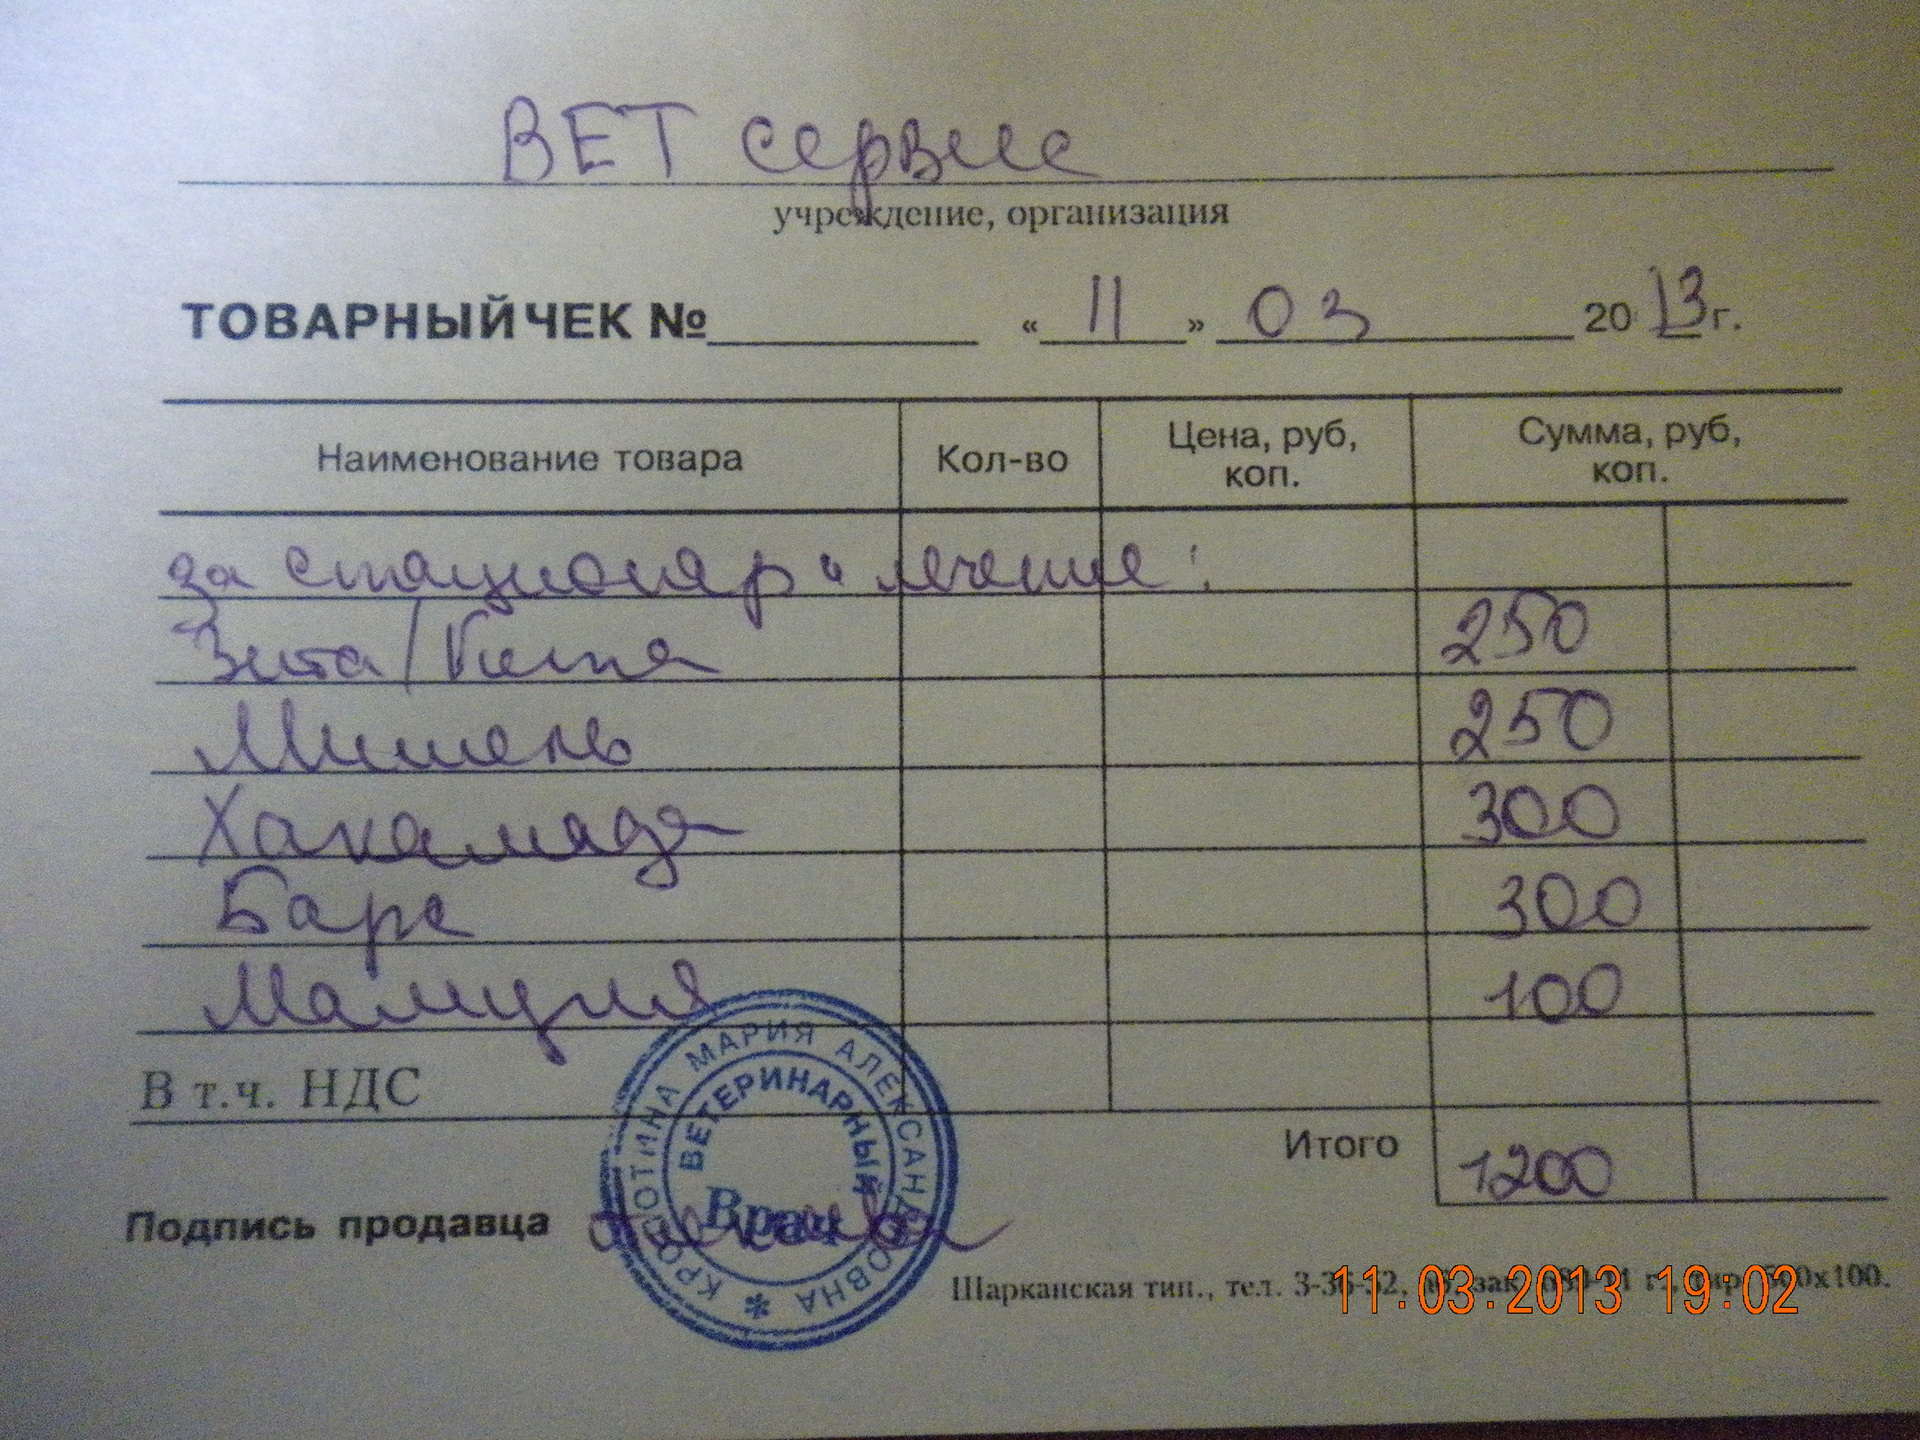 ВЕТ сервис
учреждение, организация
ТОВАРНЫЙ ЧЕК № « 11 » 03 2013 г.
Наименование товара Кол-во Цена, руб, коп. Сумма, руб, коп.
за стационар и лечение:
Зита/Гита 250
Мишень 250
Хакамада 300
Барс 300
Мамуция 100
В т.ч. НДС
Итого 1200
Подпись продавца
МАРИЯ АЛЕКСАНДРОВНА
ВЕТЕРИНАРНЫЙ
Врач
Шарканская тип., тел. 3-36-32, зак. г., тир. 500х100.
11.03.2013 19:02